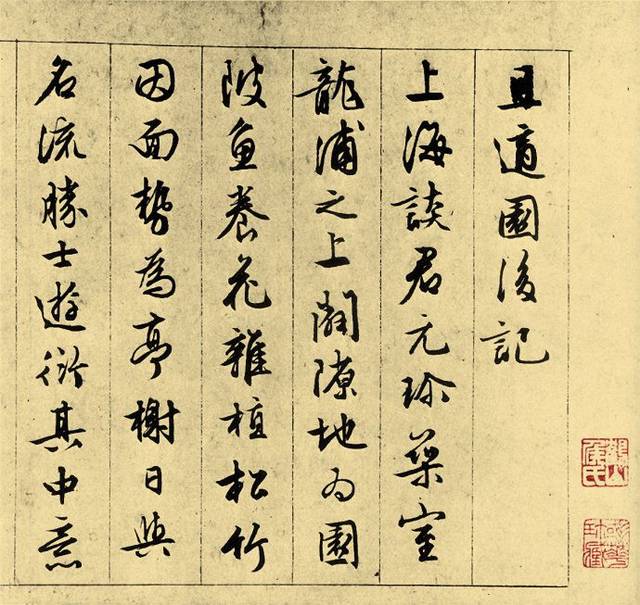 且適園後記
上海談君元珎築室
龍浦之上闢隙地為園
陂魚養花雜植松竹
因面勢為亭榭日與
名流勝士遊衍其中意